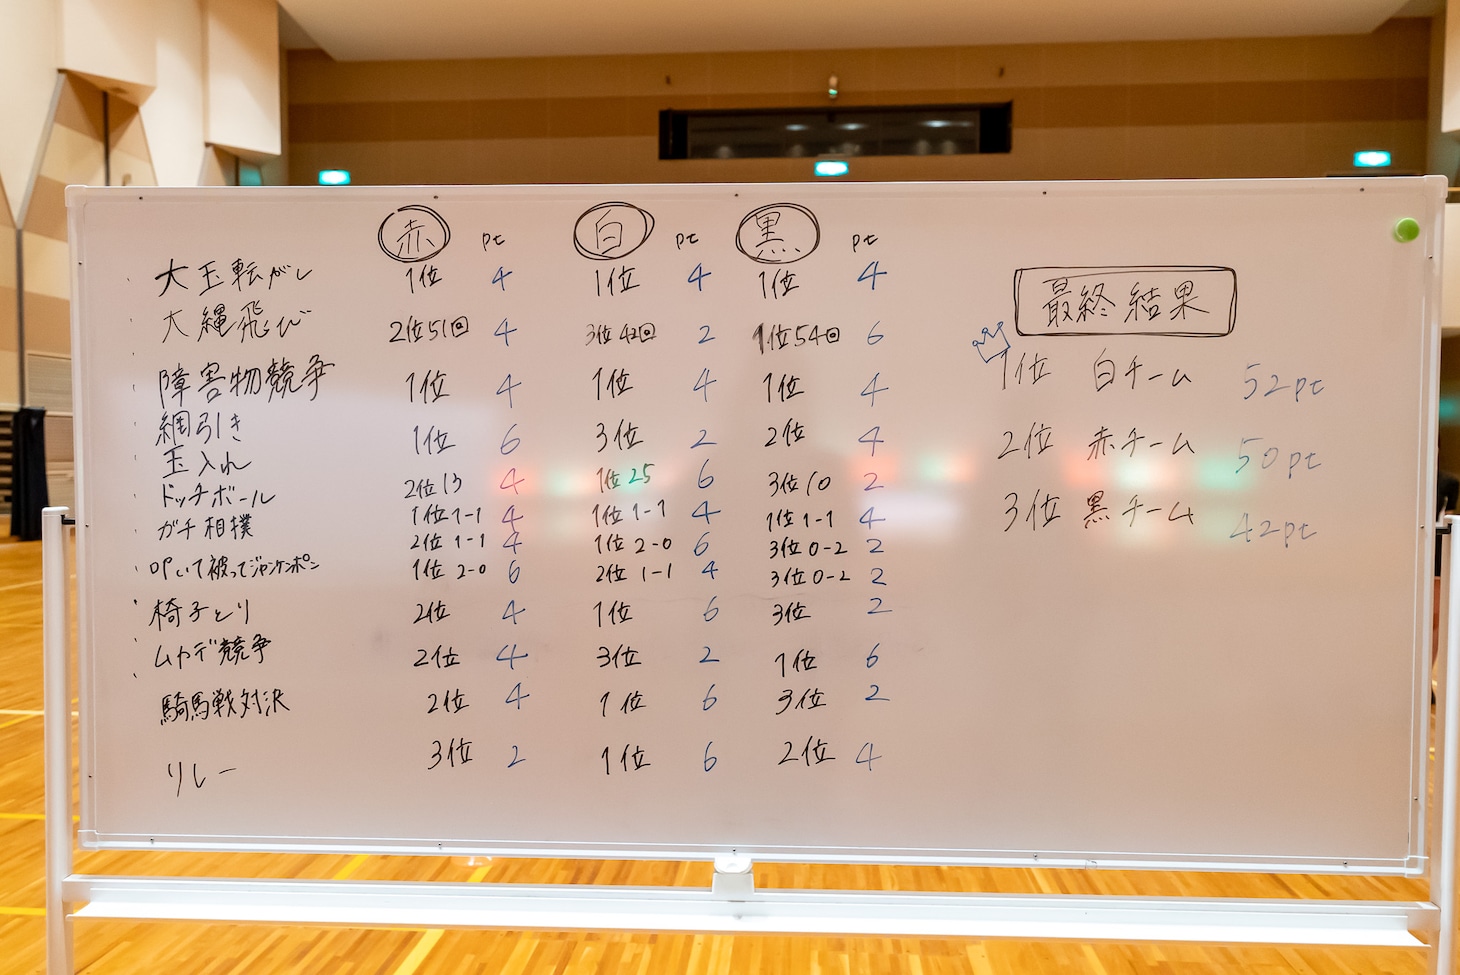 赤 pt 白 pt 黒 pt
大玉転がし 1位 4 1位 4 1位 4
大縄飛び 2位51回 4 3位42回 2 1位54回 6
障害物競争 1位 4 1位 4 1位 4
綱引き 1位 6 3位 2 2位 4
玉入れ 2位13 4 1位25 6 3位10 2
ドッチボール 1位1-1 4 1位1-1 4 1位1-1 4
ガチ相撲 2位1-1 4 1位2-0 6 3位0-2 2
叩いて被ってジャンケンポン 1位2-0 6 2位1-1 4 3位0-2 2
椅子とり 2位 4 1位 6 3位 2
ムカデ競争 2位 4 3位 2 1位 6
騎馬戦対決 2位 4 1位 6 3位 2
リレー 3位 2 1位 6 2位 4
最終結果
1位 白チーム 52pt
2位 赤チーム 50pt
3位 黒チーム 42pt